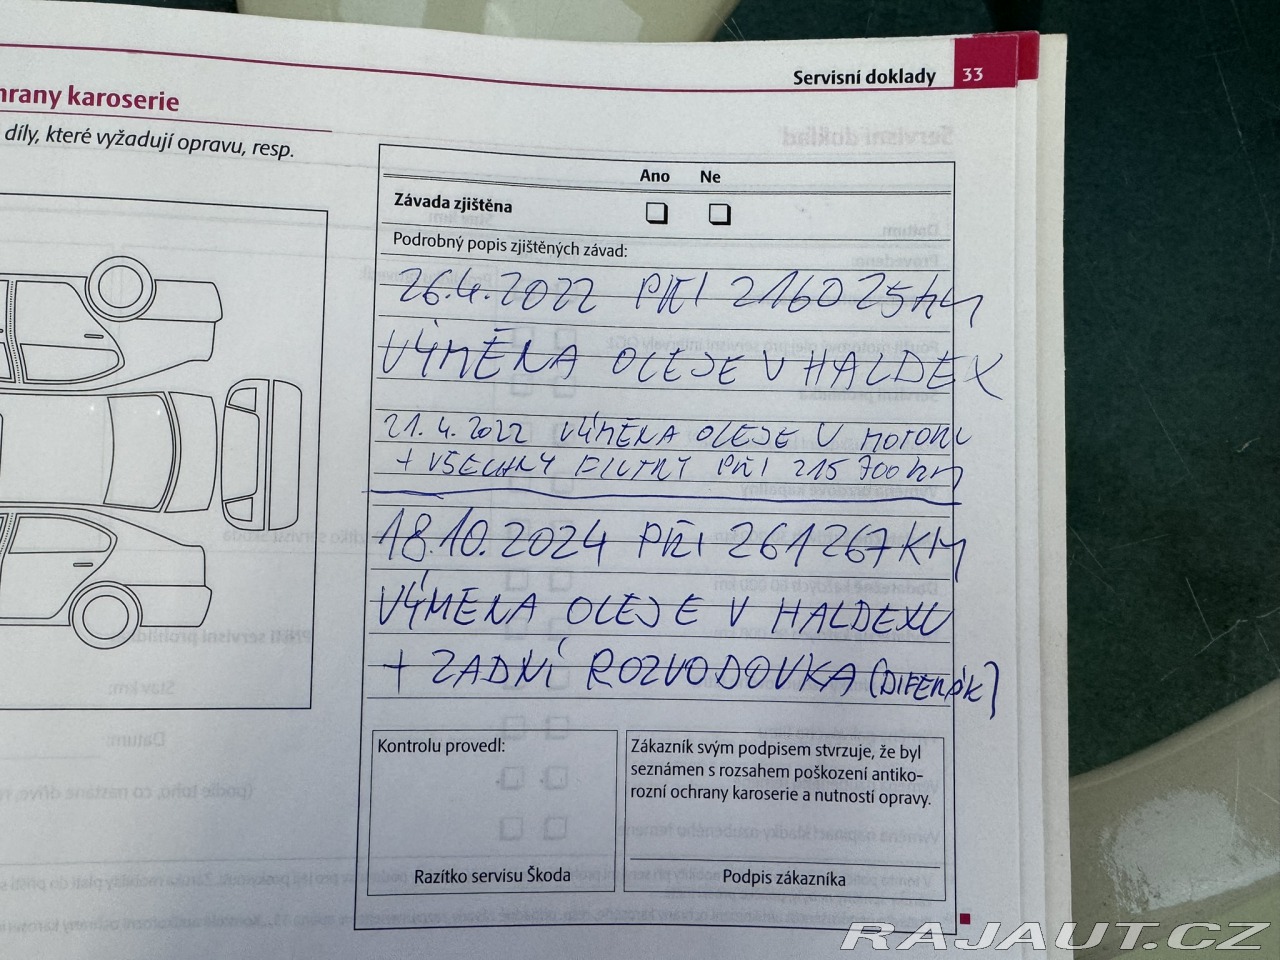 Servisní doklady 33
hrany karoserie
díly, které vyžadují opravu, resp.
Ano Ne
Závada zjištěna
Podrobný popis zjištěných závad:
26.4.2022 PŘI 216025km
VÝMĚNA OLEJE V HALDEX
21.4.2022 VÝMĚNA OLEJE V MOTORU
+ VŠECHNY FILTRY PŘI 215700km
18.10.2024 PŘI 261267KM
VÝMĚNA OLEJE V HALDEXU
+ ZADNÍ ROZVODOVKA (DIFERÁK)
Kontrolu provedl:
Razítko servisu Škoda
Zákazník svým podpisem stvrzuje, že byl
seznámen s rozsahem poškození antiko-
rozní ochrany karoserie a nutností opravy.
Podpis zákazníka
RAJAUT.CZ